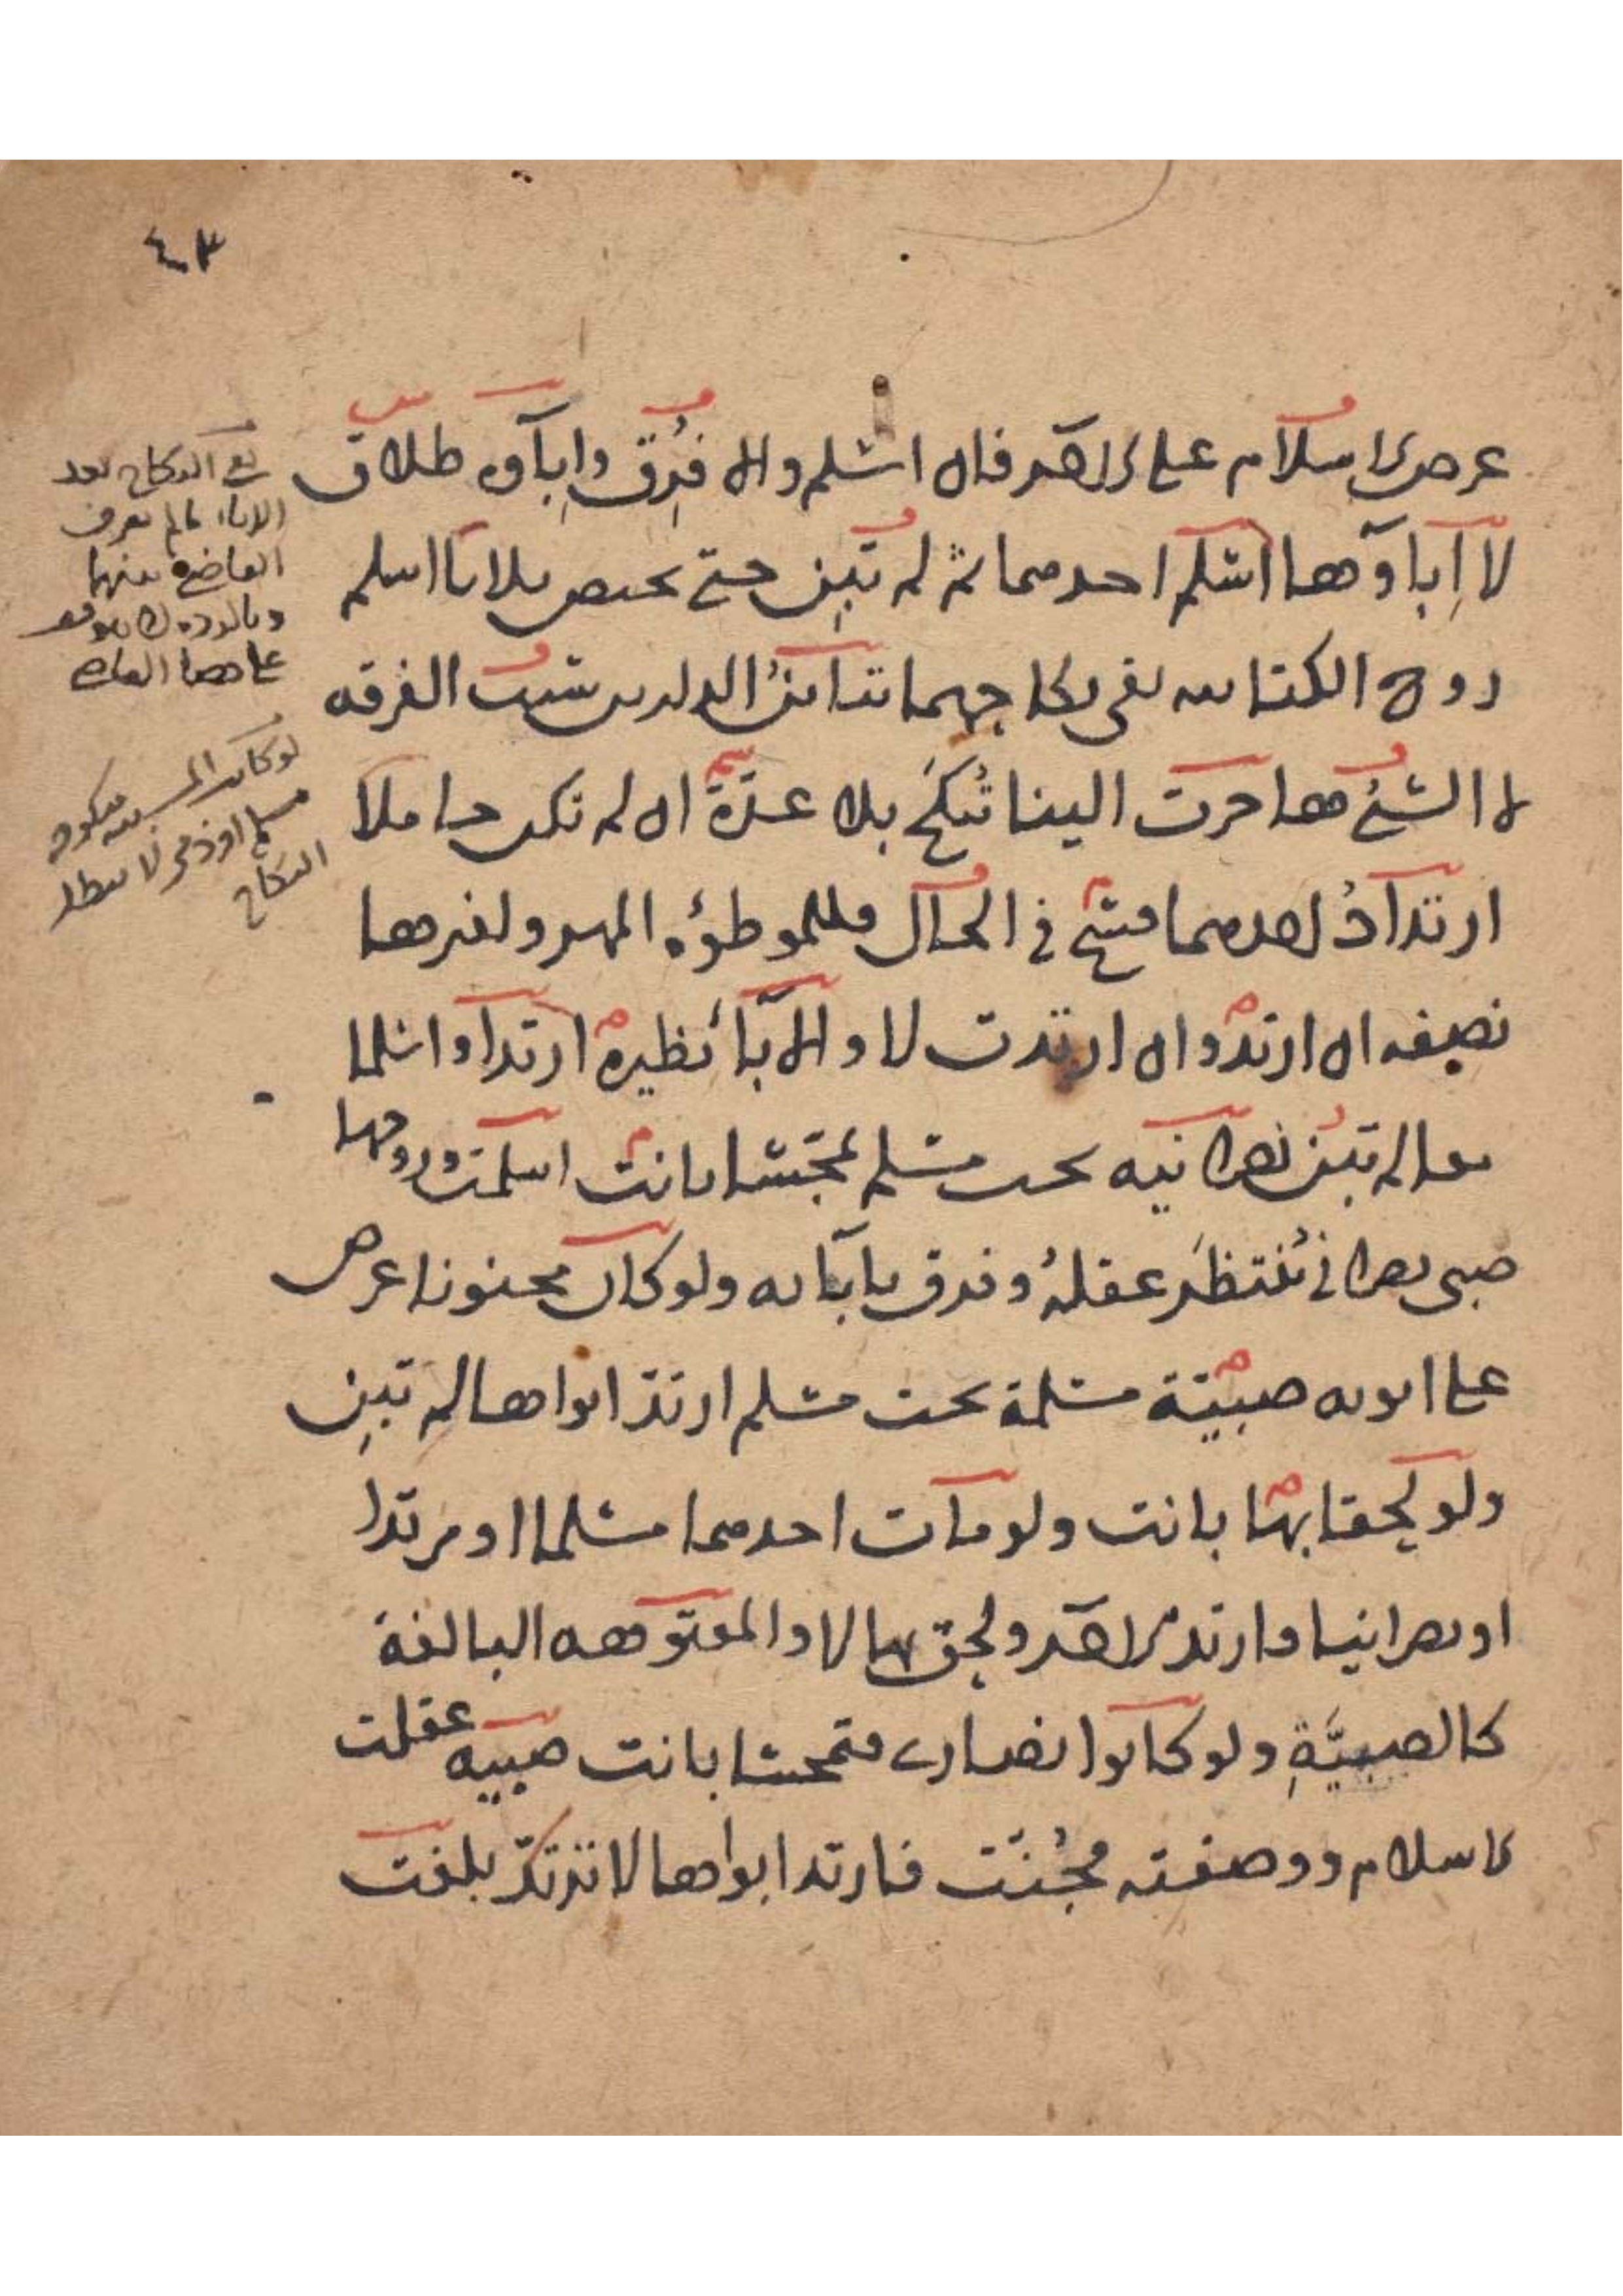 ٤٣
عرض الاسلام على الاخر فان اسلم والا فرق واباؤه طلاق
لا اباؤها اسلم احدهما ثمة لم تبن حتى تحيض ثلاثا اسلم
زوج الكتابية بقى نكاحهما تباين الدارين سبب الفرقه
لا السبى مهاجرت الينا تنكح بلا عدة ان لم تكن حاملا
ارتداد احدهما فسخ في الحال فللموطؤه المهر ولغيرها
نصفه ان ارتد وان ارتدت لا والاباء نظيره ارتدا واسلما
معا لم تبن نصرانيه تحت مسلم تمجسا بانت اسلمت وزوجها
صبى نصرانى ننتظر عقله وفرق باباىه ولو كان مجنونا عرض
على ابويه صبية مسلمة تحت مسلم ارتد ابواها لم تبن
ولو لحقا بها بانت ولو مات احدهما مسلما او مرتدا
او نصرانيا وارتد الاخر ولحق بها لا والمعتوهه البالغة
كالصبية ولو كانوا نصارى فتمجسا بانت صبيه عقلت
الاسلام ووصفته فجنت فارتد ابواها لا ترتد بلغت
النكاح بعد
الاباء ما لم يفرق
القاضى بينهما
على قضا القاضى
لو كان
مسلم او ذمى لا يبطل
النكاح